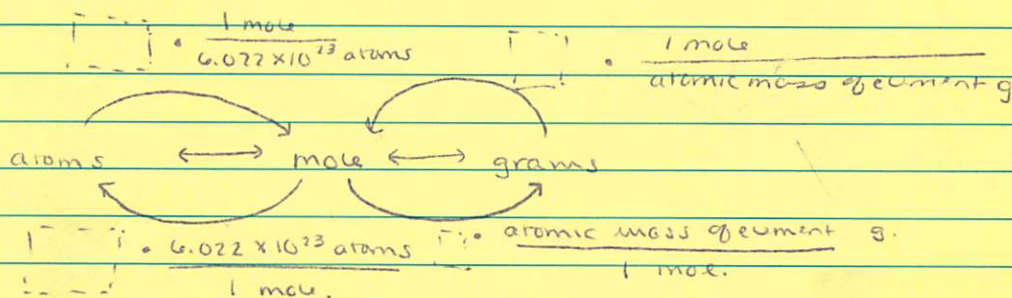 · 1 mole / 6.022 × 10²³ atoms
· 1 mole / atomic mass of element g
atoms ↔ mole ↔ grams
· 6.022 × 10²³ atoms / 1 mole.
· atomic mass of element g. / 1 mole.